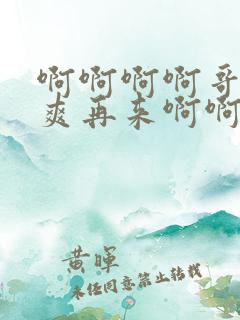 啊啊啊啊哥
爽再来啊啊
黄晖
未经同意禁止转载